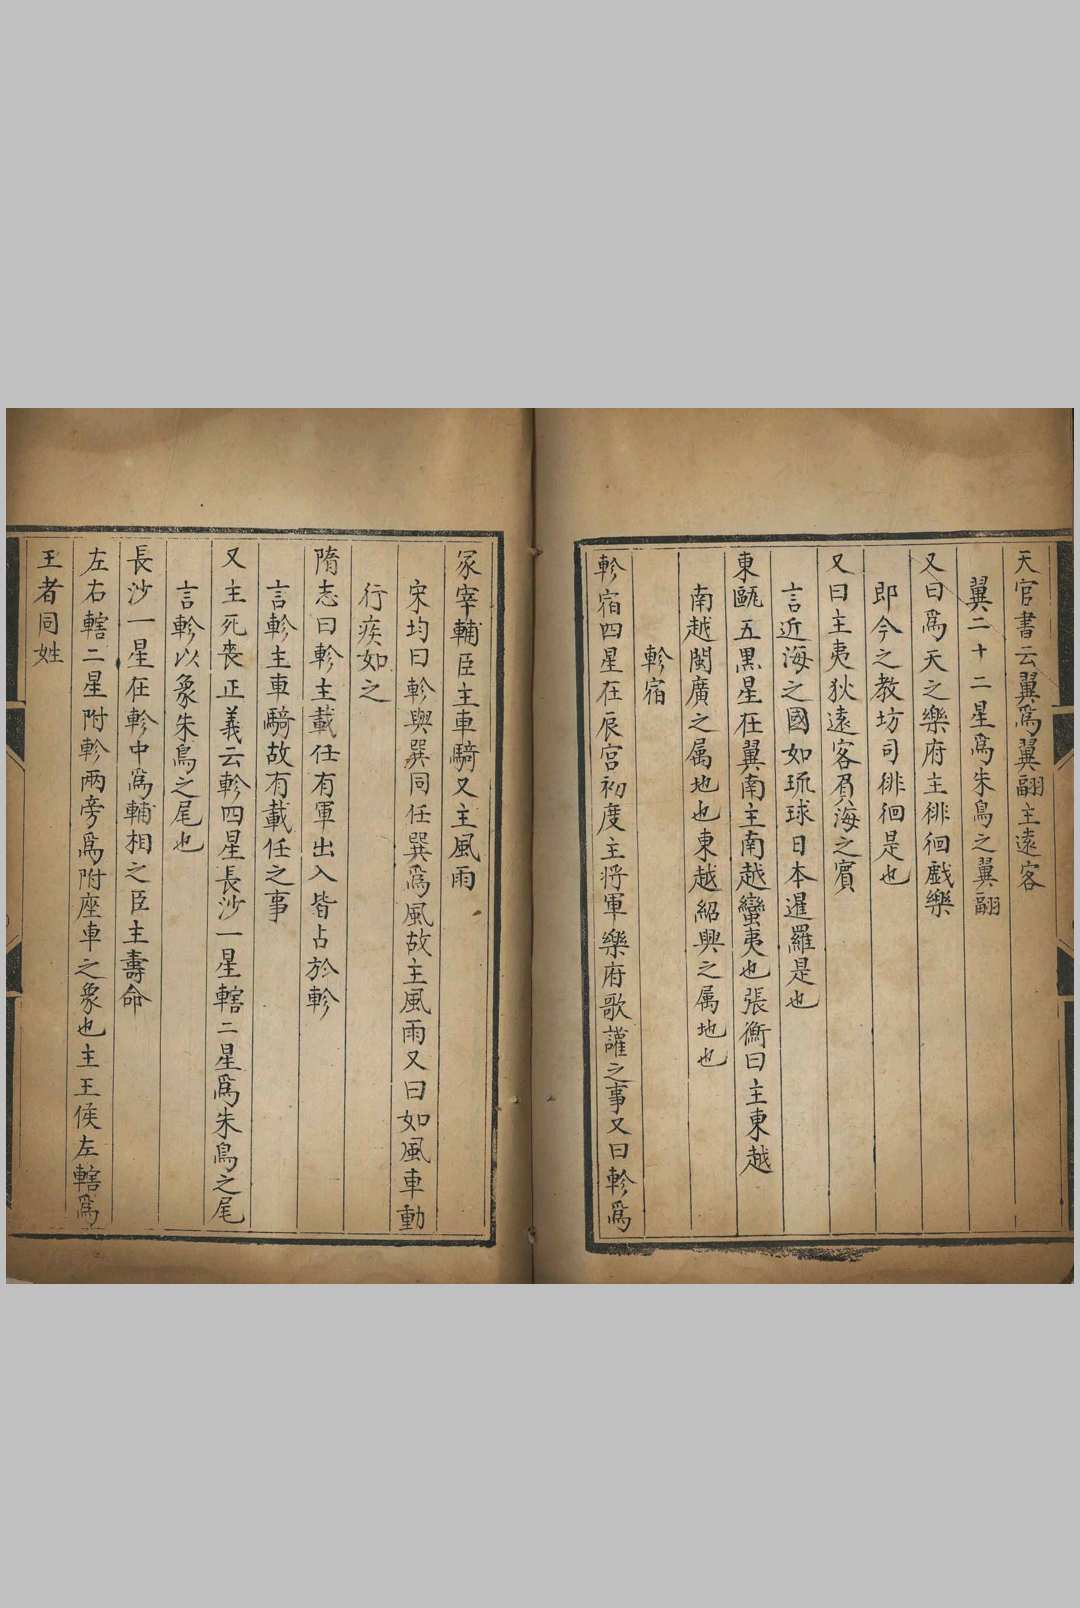 天官書云翼爲翼翮主遠客
翼二十二星爲朱鳥之翼翮
又曰爲天之樂府主徘徊戲樂
即今之教坊司徘徊是也
又曰主夷狄遠客負海之賓
言近海之國如琉球日本暹羅是也
東甌五黑星在翼南主南越蠻夷也張衡曰主東越
南越閩廣之属地也東越紹興之属地也
軫宿
軫宿四星在辰宮初度主將軍樂府歌讙之事又曰軫爲
冢宰輔臣主車騎又主風雨
宋均曰軫與巽同任巽爲風故主風雨又曰如風車動
行疾如之
隋志曰軫主載任有軍出入皆占於軫
言軫主車騎故有載任之事
又主死喪正義云軫四星長沙一星轄二星爲朱鳥之尾
言軫以象朱鳥之尾也
長沙一星在軫中爲輔相之臣主壽命
左右轄二星附軫兩旁爲附座車之象也主王侯左轄爲
王者同姓